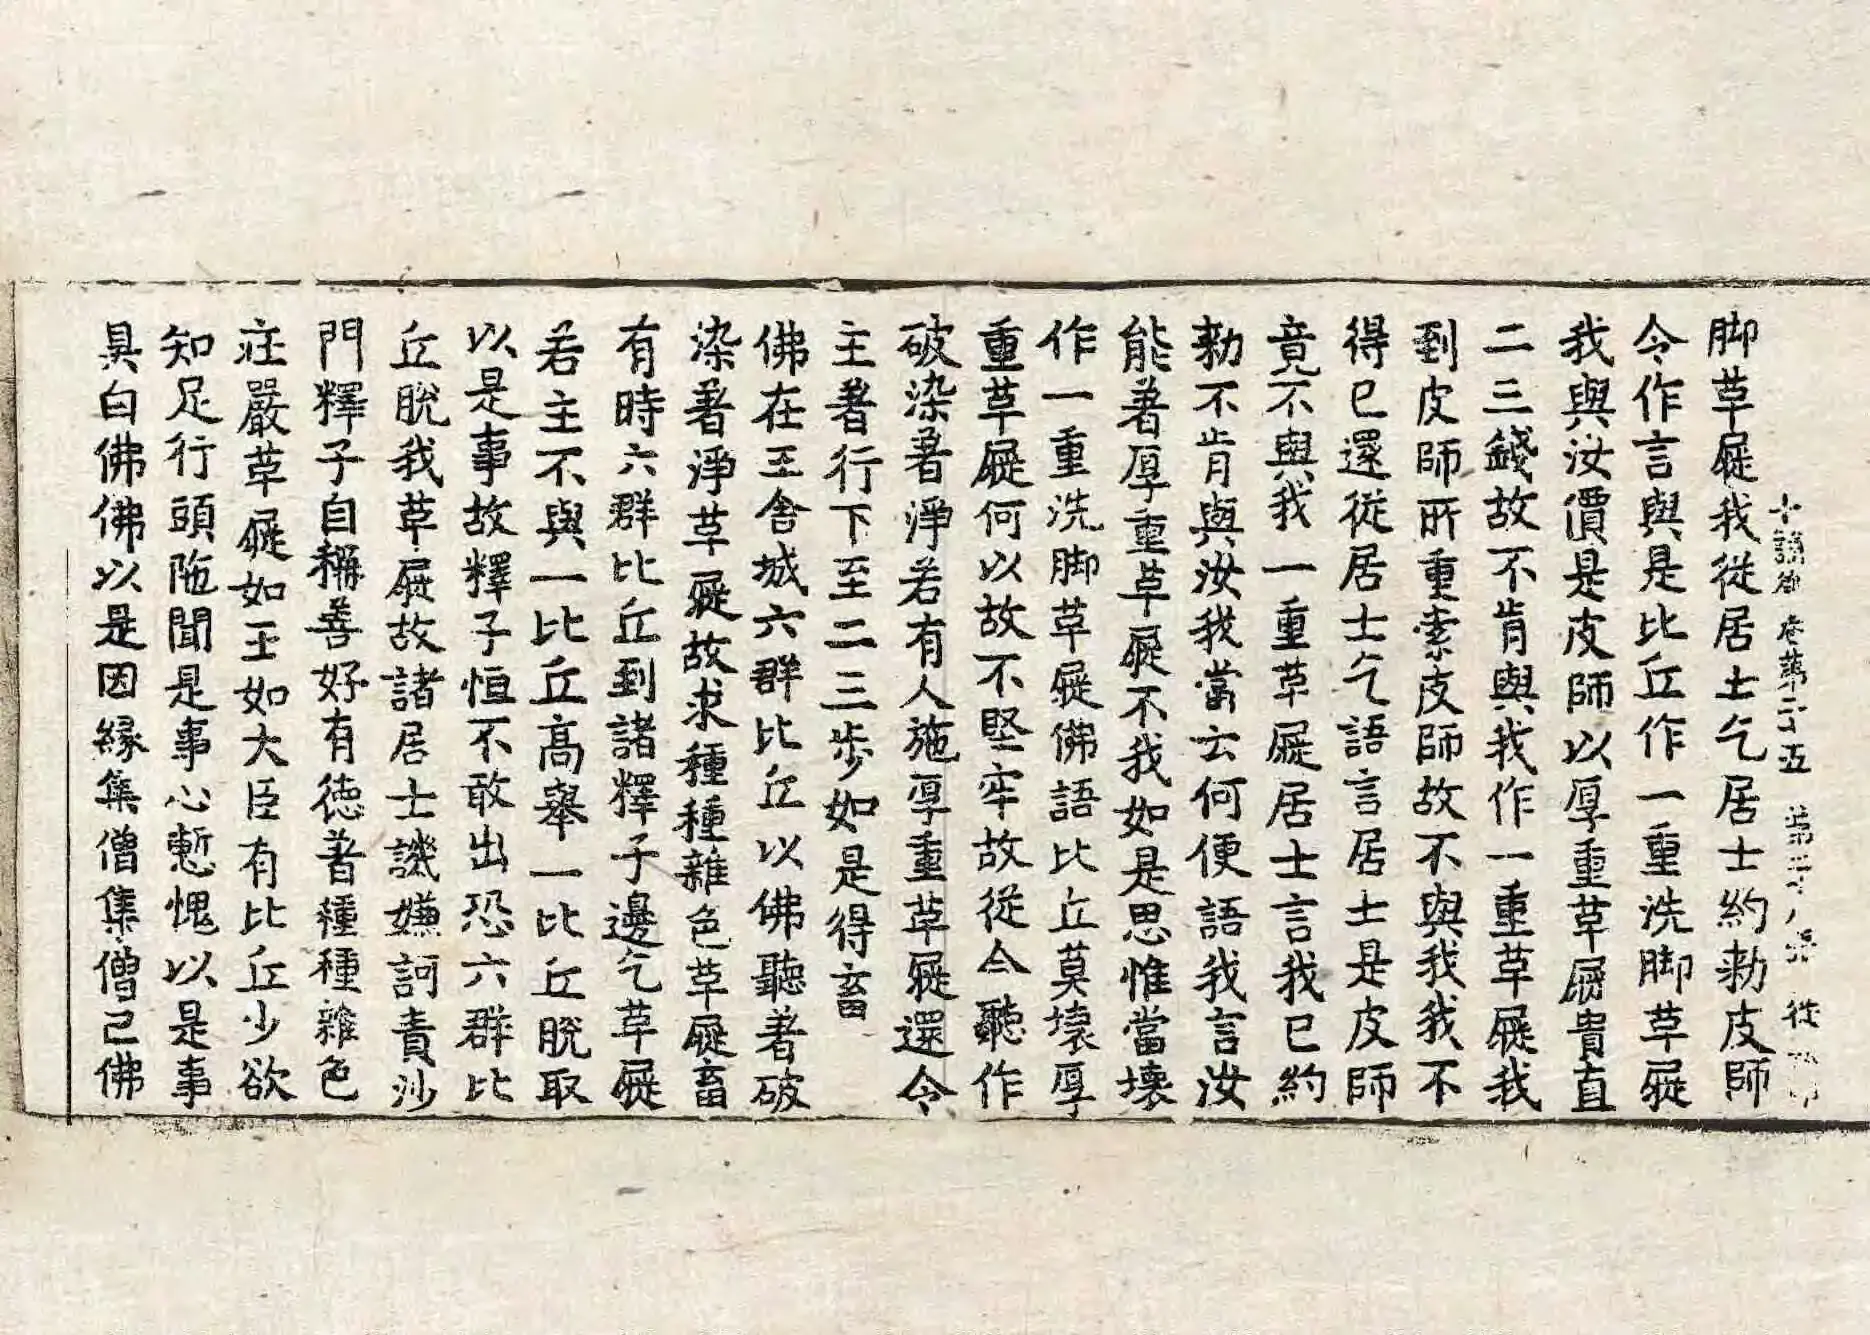 十誦律 卷第二十五 第二十八張 從
脚草屣我從居士乞居士約勅皮師
令作言與是比丘作一重洗脚草屣
我與汝價是皮師以厚重草屣貴直
二三錢故不肯與我作一重草屣我
到皮師所重索皮師故不與我我不
得已還從居士乞語言居士是皮師
竟不與我一重草屣居士言我已約
勅不肯與汝我當云何便語我言汝
能著厚重草屣不我如是思惟當壞
作一重洗脚草屣佛語比丘莫壞厚
重草屣何以故不堅牢故從今聽作
破染著淨若有人施厚重草屣還令
主著行下至二三步如是得畜
佛在王舍城六群比丘以佛聽著破
染著淨草屣故求種種雜色草屣畜
有時六群比丘到諸釋子邊乞草屣
若主不與一比丘高舉一比丘脫取
以是事故釋子恒不敢出恐六群比
丘脫我草屣故諸居士譏嫌訶責沙
門釋子自稱善好有德著種種雜色
莊嚴草屣如王如大臣有比丘少欲
知足行頭陁聞是事心慙愧以是事
具白佛佛以是因緣集僧集僧已佛